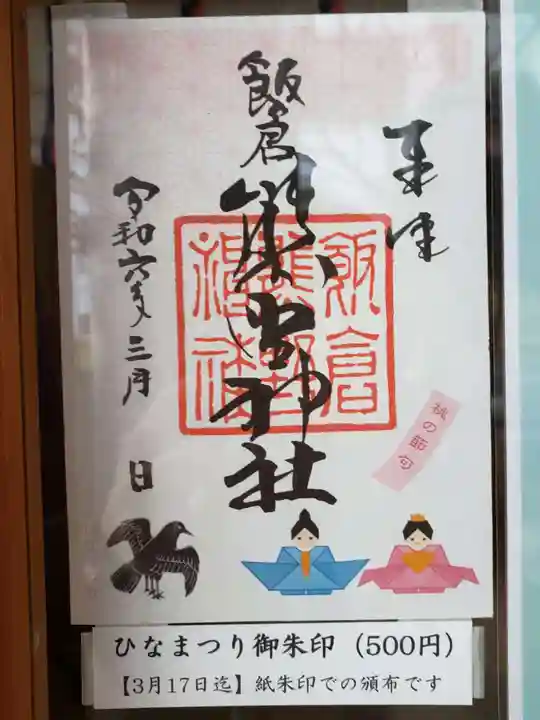 奉拝
飯倉
熊野神社
飯倉
熊野
神社
令和六年三月
日
桃の節句
ひなまつり御朱印（500円）
【3月17日迄】紙朱印での頒布です